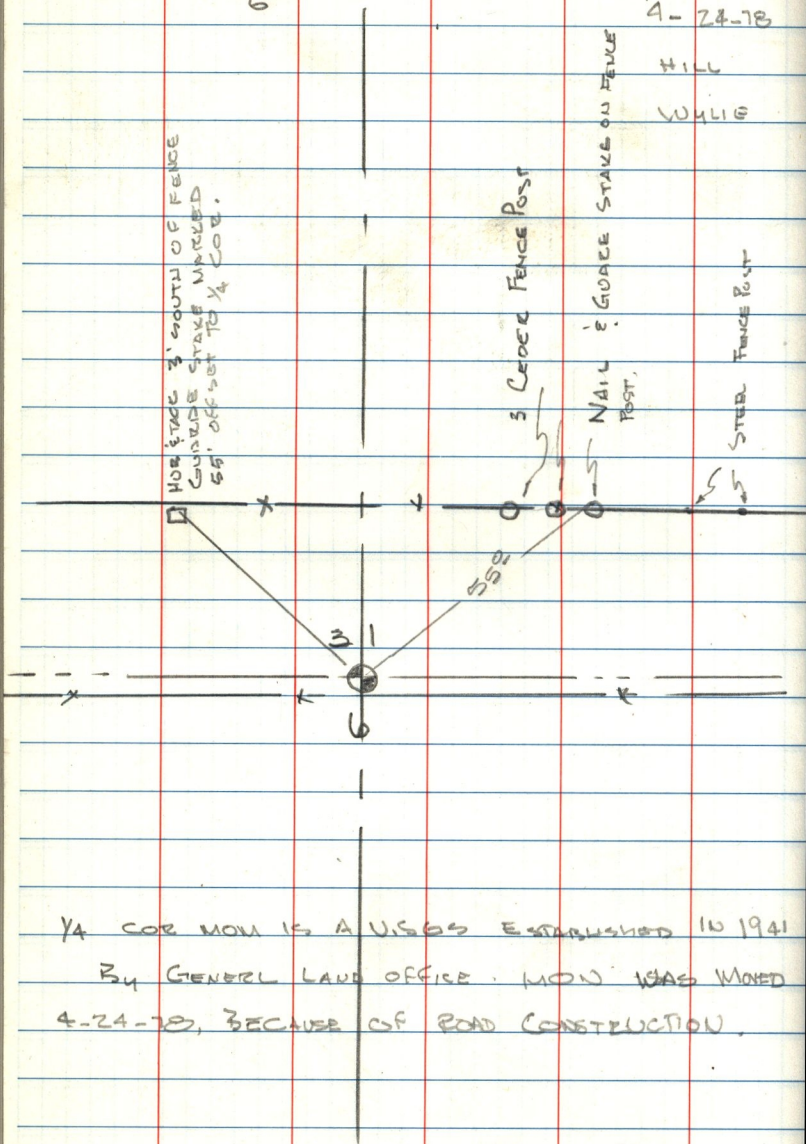 6
4-24-78
HILL
WYLIE
HUB & TACK 3' SOUTH OF FENCE
GUARDE STAKE MARKED
55' OFFSET TO 1/4 COR.
3 CEDER FENCE POST
NAIL & GUARE STAKE ON FENCE
POST.
STEEL FENCE POST
55º
1
6
1/4 COR MOM IS A U.S.G.S ESTABLISHED IN 1941
By GENERL LAND OFFICE. MON WAS MOVED
4-24-78, BECAUSE OF ROAD CONSTRUCTION.